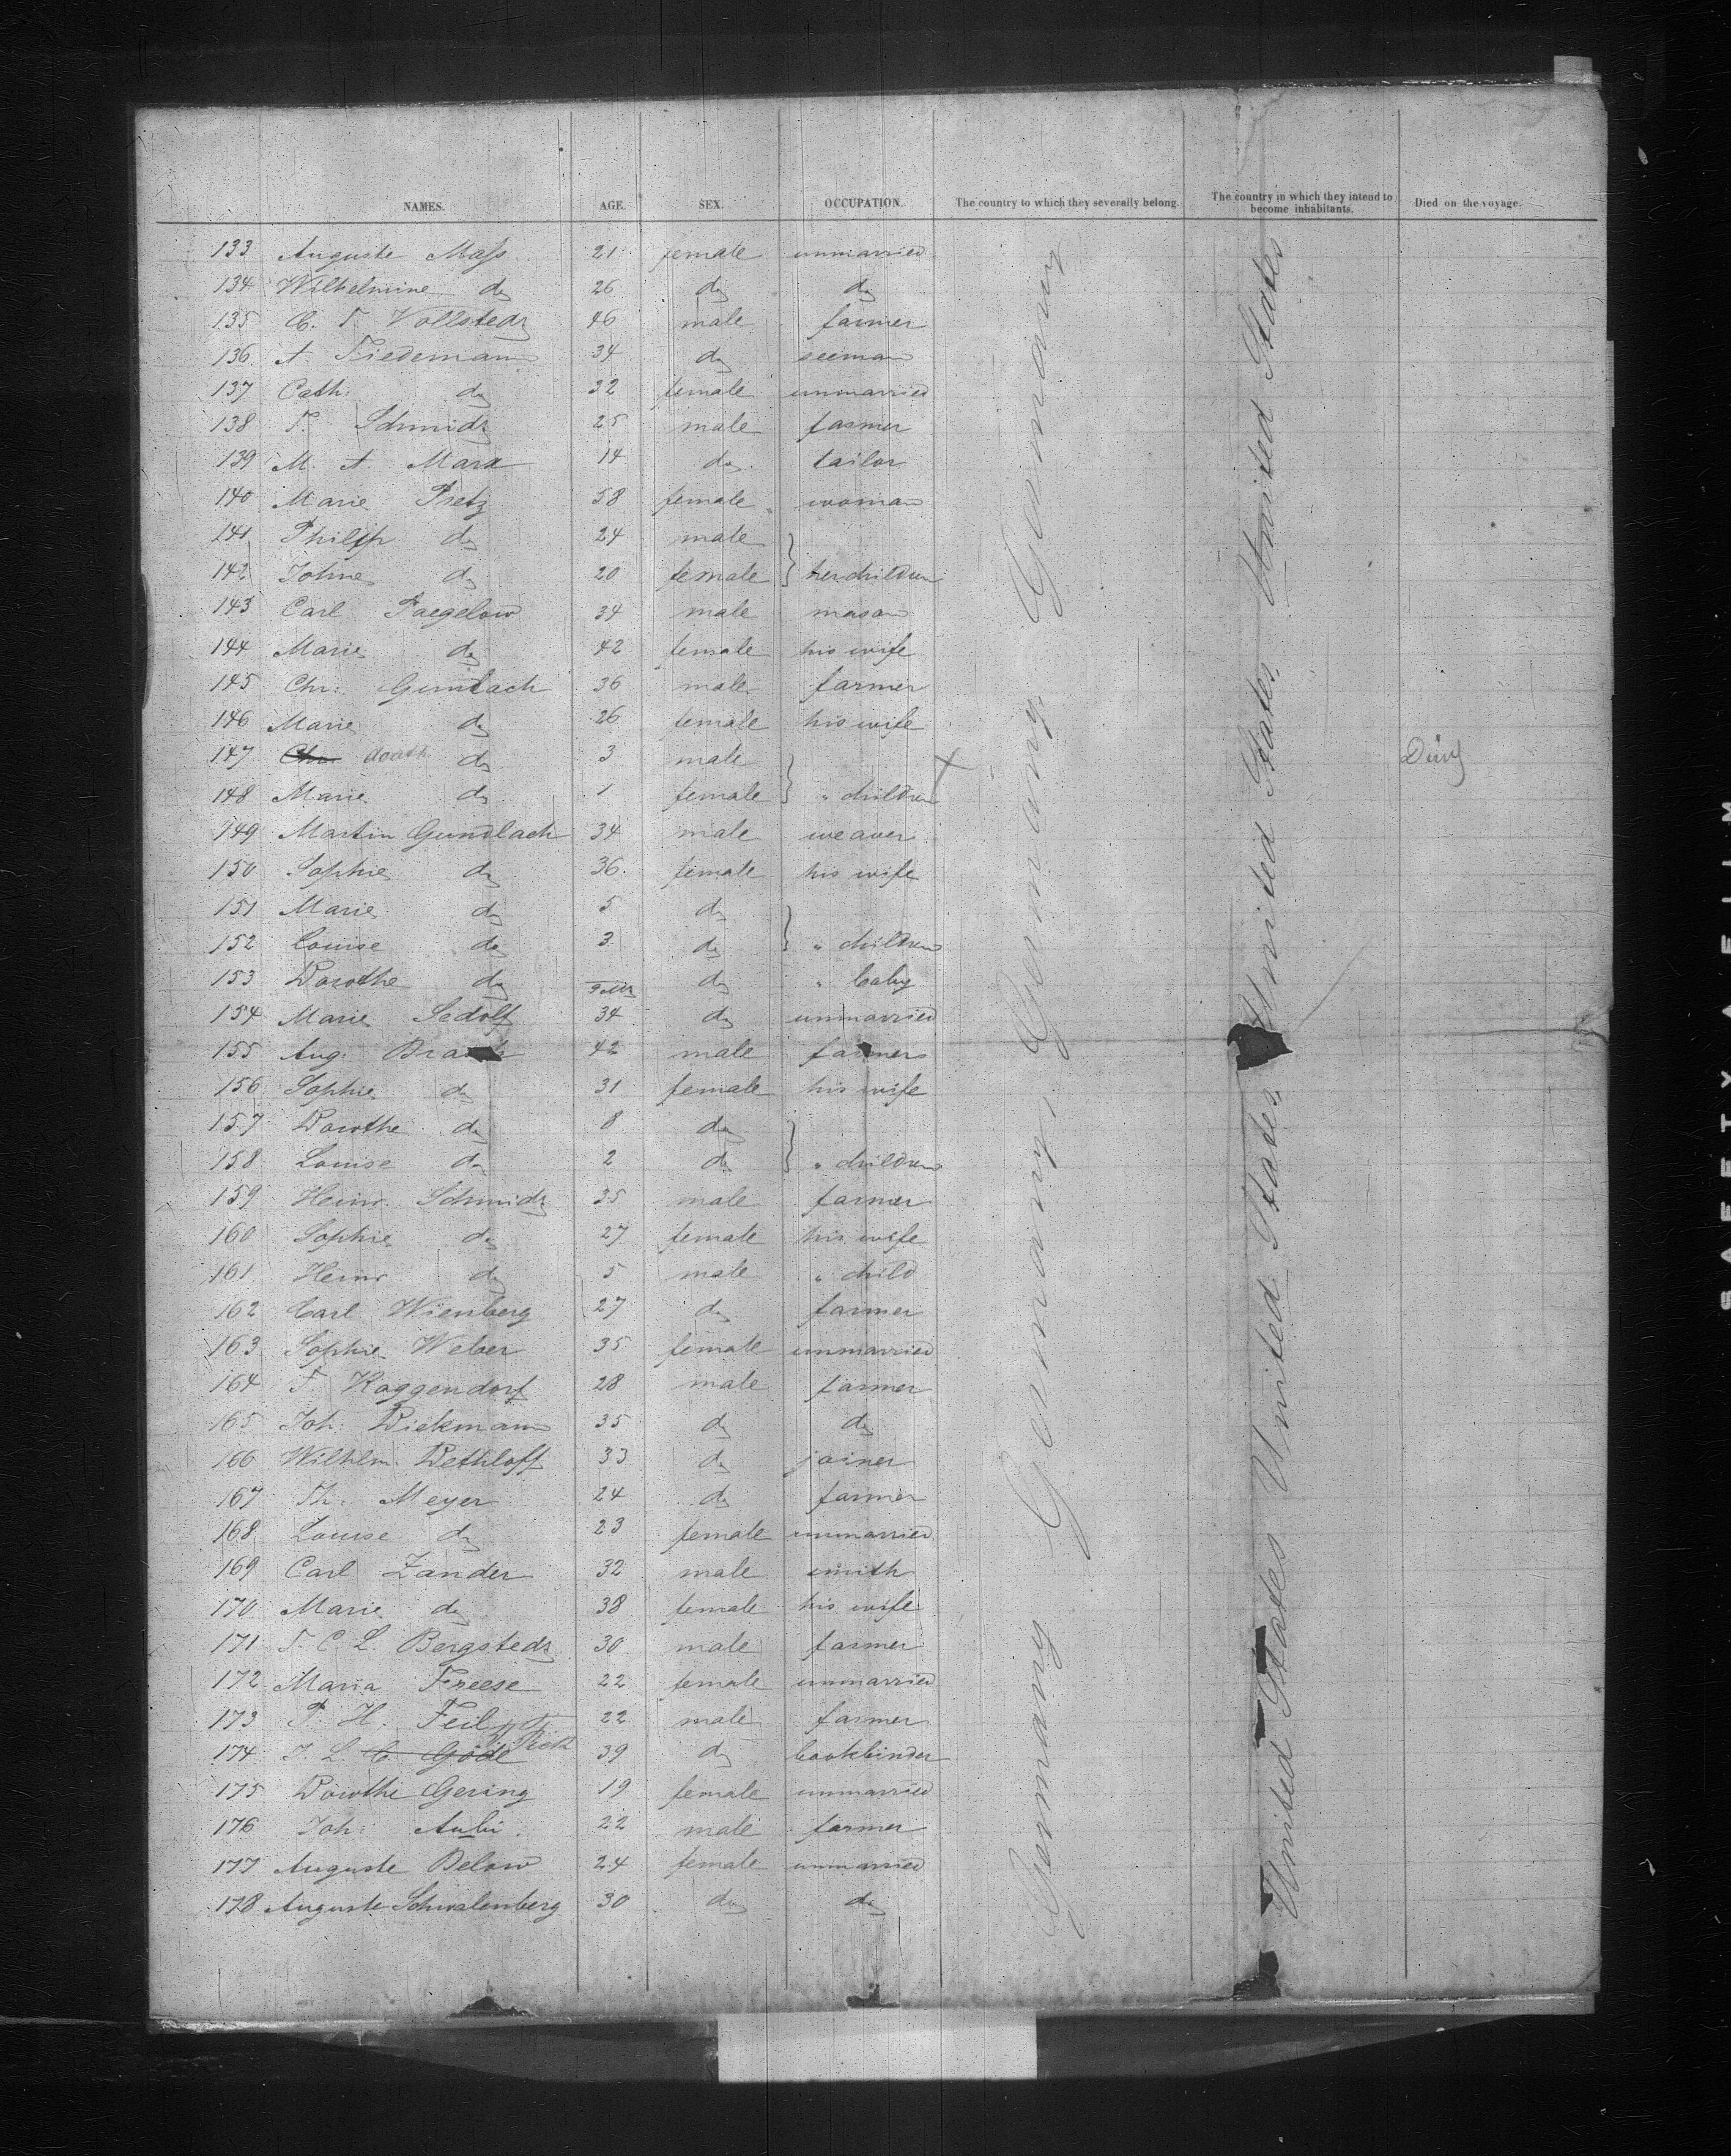 NAMES. AGE. SEX. OCCUPATION. The country to which they severally belong. The country in which they intend to become inhabitants. Died on the voyage.
133 Auguste Mass 21 female unmarried
134 Wilhelmine do 26 do do
135 C. F. Vollstedt 46 male farmer
136 A. Tiedemann 34 do seeman
137 Cath. do 32 female unmarried
138 F. Schmidt 25 male farmer
139 M. A. Marx 14 do tailor
140 Marie Pretz 58 female woman
141 Philip do 24 male
142 do 20 female } her children
143 Carl Paegelow 34 male mason
144 Marie do 42 female his wife
145 Chr: Gundlach 36 male farmer
146 Marie do 26 female his wife
147 Chr. death do 3 male
148 Marie do 1 female } " children
149 Martin Gundlach 34 male weaver
150 Sophie do 36 female his wife
151 Marie do 5 do
152 Louise do 3 do } " children
153 Dorothe do do " baby
154 Marie Sedolf 34 do unmarried
155 Aug: 42 male farmer
156 Sophie do 31 female his wife
157 Dorothe do 8 do
158 Louise do 2 do } " children
159 Heinr. Schmidt 35 male farmer
160 Sophie do 27 female his wife
161 Heinr do 5 male " child
162 Carl Wienberg 27 do farmer
163 Sophie Weber 35 female unmarried
164 F. Roggendorf 28 male farmer
165 Joh: Diekmann 35 do do
166 Wilhlm. Dethloff 33 do joiner
167 Th: Meyer 24 do farmer
168 Louise do 23 female unmarried
169 Carl Zander 32 male smith
170 Marie do 38 female his wife
171 F. C. L. Bergstedt 30 male farmer
172 Maria Freese 22 female unmarried
173 P. H. Feil 22 male farmer
174 J. L. C. Göde 39 do bookbinder
175 Dorothe Gering 19 female unmarried
176 Joh: 22 male farmer
177 Auguste Below 24 female unmarried
178 Auguste Schwalenberg 30 do do
Germany Germany Germany Germany
United States United States United States United States
SAFETY FILM